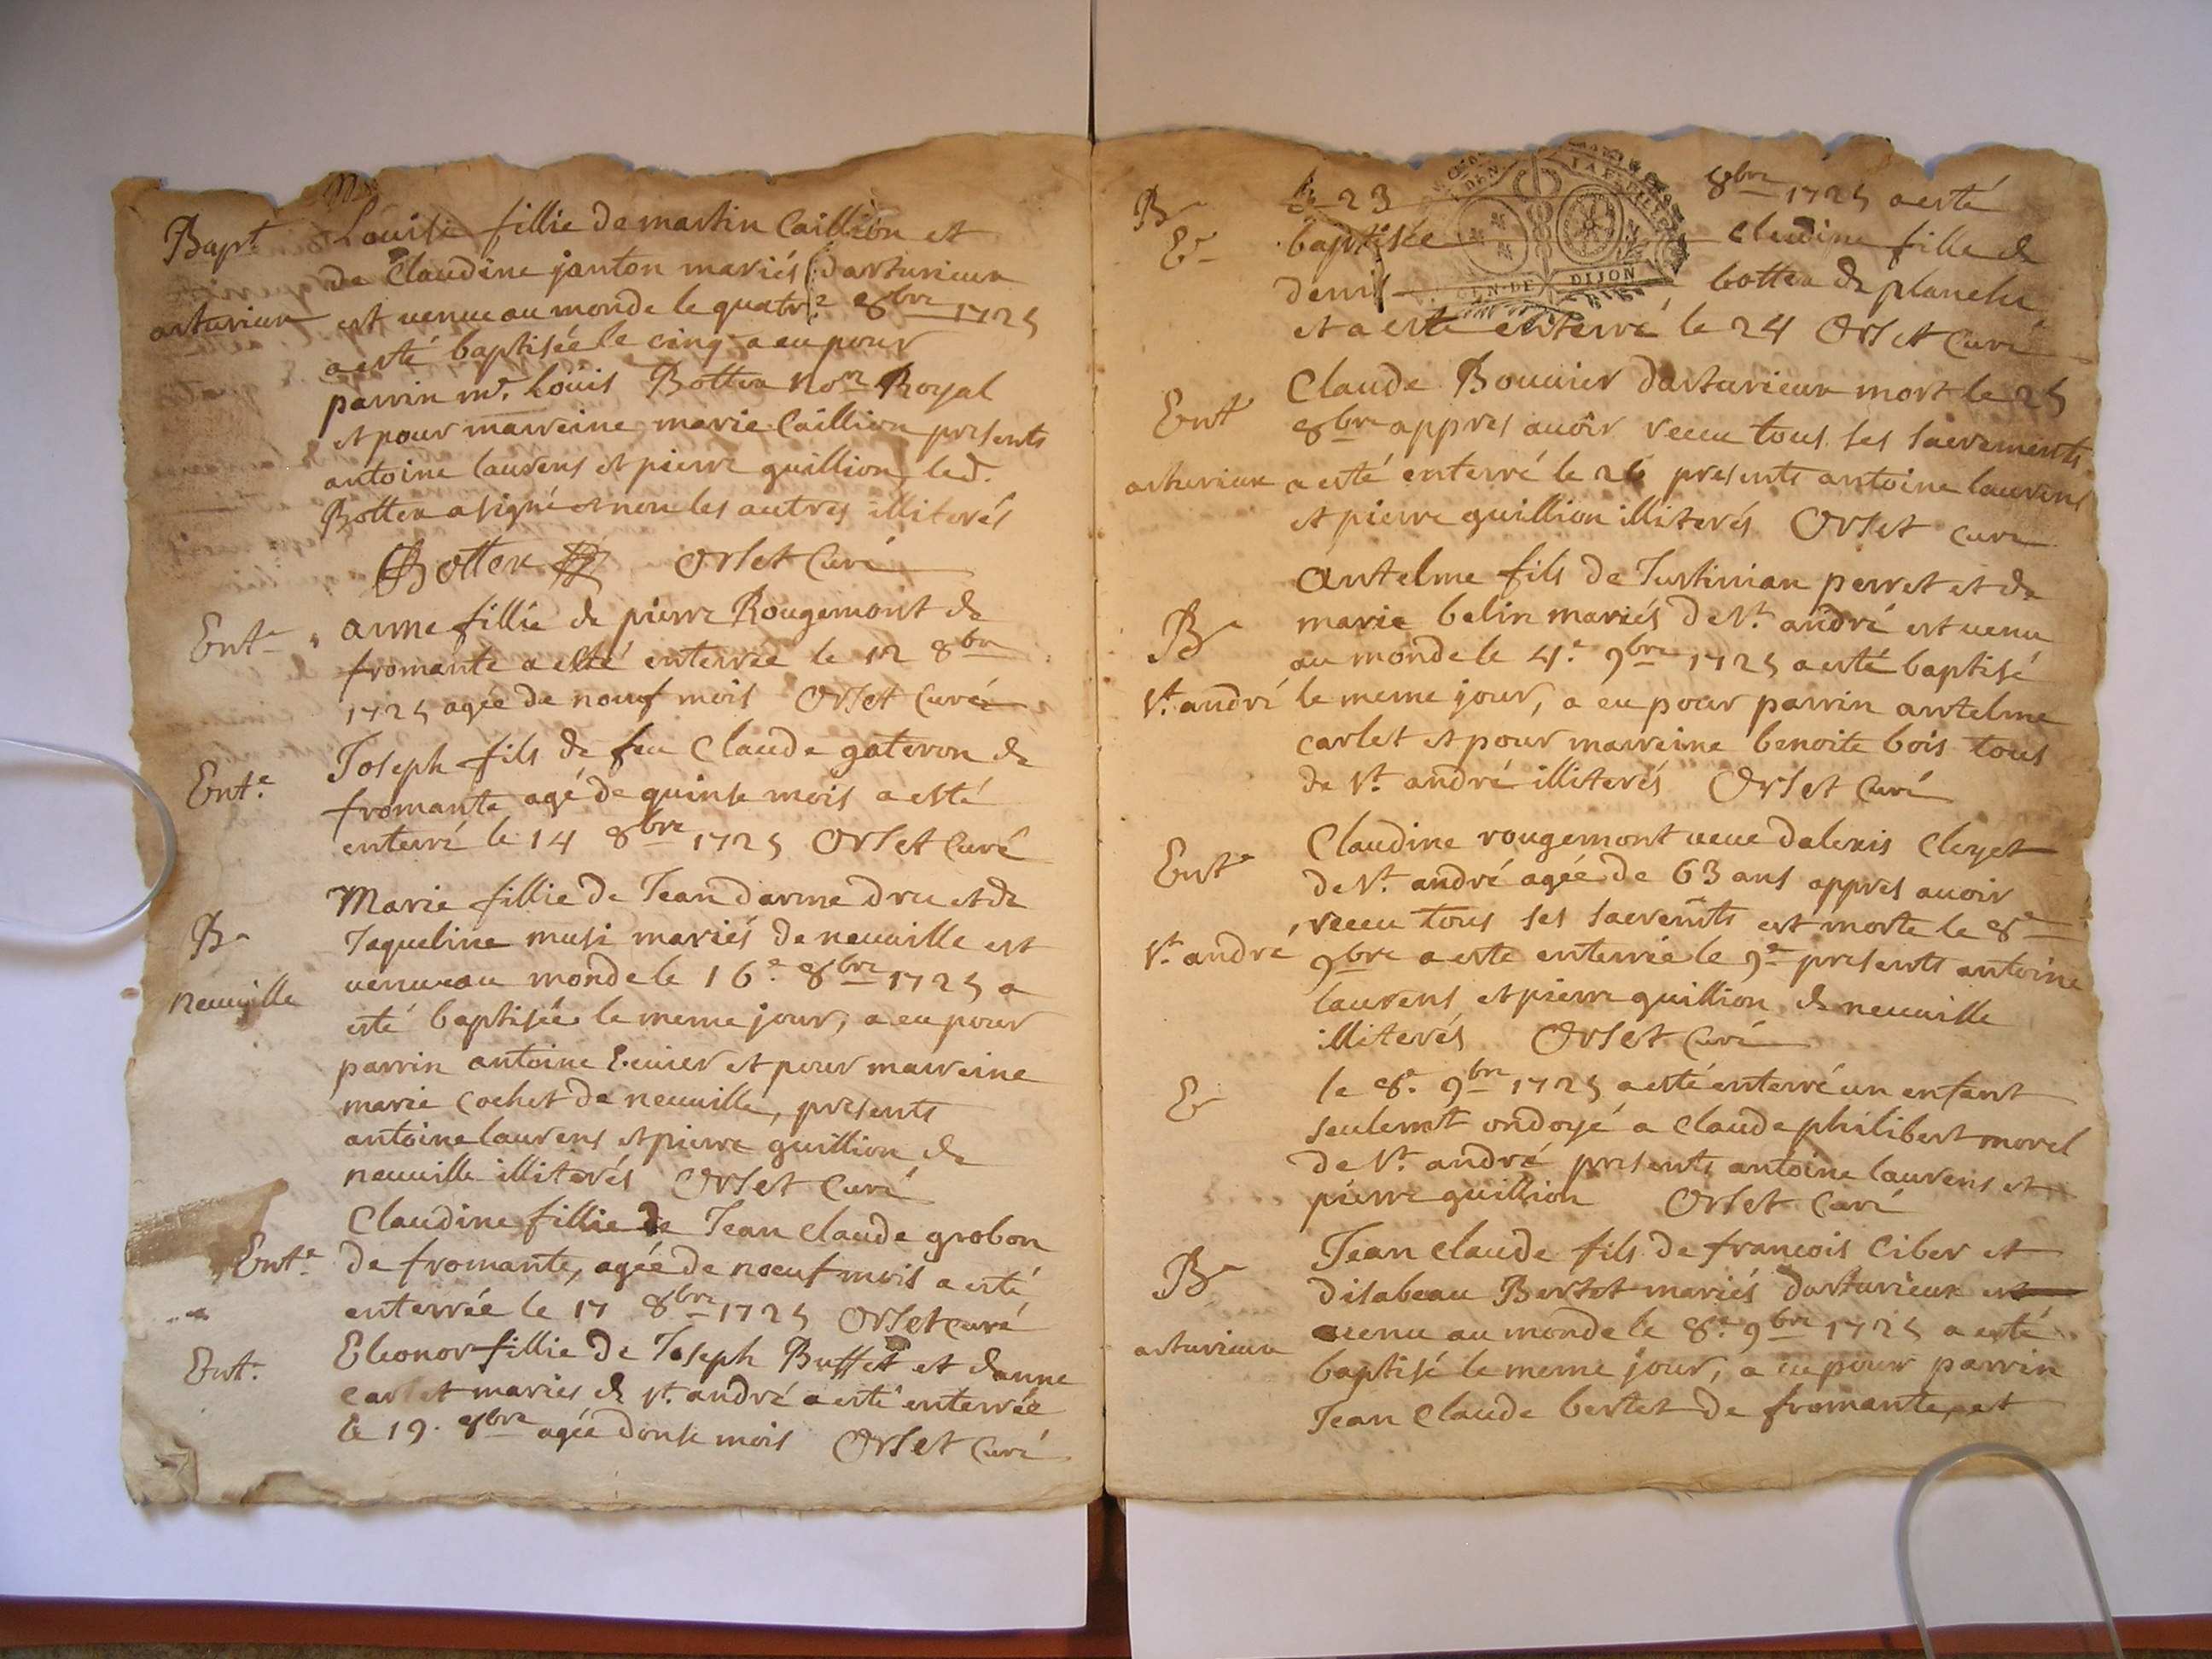 Bapt.
arturieux
Louise fillie de martin Caillion et
de Claudine janton mariés darturieux
est venue au monde le quatre 8bre 1725
a esté baptisée le cinq a eu pour
parrin mr. Louis Bottex nore Royal
et pour marreine marie Caillion presents
antoine laurens et pierre guillion, led.
Bottex a signé et non les autres illiterés
Bottex Orset Curé
Ente
anne fillie de pierre Rougemont de
fromante a esté enterrée le 12 8bre
1725 agée de nouf mois Orset Curé
Ente
Joseph fils de feu Claude gateron de
fromante agé de quinse mois a esté
enterré le 14 8bre 1725 Orset Curé
Be
neuville
Marie fillie de Jean darme dru et de
Jaqueline musi mariés de neuville est
venue au monde le 16e 8bre 1725 a
esté baptisée le meme jour, a eu pour
parrin antoine et pour marreine
marie Cochet de neuville, presents
antoine laurens et pierre guillion de
neuville illiterés Orset Curé
Ente
Claudine fillie de Jean Claude grobon
de fromante, agée de nœuf mois a esté
enterrée le 17 8bre 1725 Orset curé
Ente
Eleonor fillie de Joseph Buffet et danne
Carlet mariés de st. andré a esté enterrée
le 19. 8bre agée donse mois Orset Curé
Be
Ee
GEN. DE DIJON
le 23 8bre 1725 a esté
baptisée Claudine fille de
denis bottex de planche
et a esté enterré le 24 Orset Curé
Ent
arturieux
Claude Bouvier darturieux mort le 25
8bre appres avoir receu tous ses sacrements
a esté enterré le 26 presents antoine laurens
et pierre guillion illiterés Orset curé
Be
st. andré
Antelme fils de Justinian perret et de
marie belin mariés de st. andré est venu
au monde le 4.e 9bre 1725 a esté baptisé
le meme jour, a eu pour parrin antelme
carlet et pour marreine benoite bois tous
de st. andré illiterés Orset Curé
Ente
st. andré
Claudine rougemont veue dalexis Cleyet
de st. andré agée de 63 ans appres avoir
receu tous ses sacremts est morte le 8e
9bre a esté enterrée le 9e presents antoine
laurens et pierre guillion de neuville
illiterés Orset Curé
E
le 8e. 9bre 1725 a esté enterré un enfant
seulemt ondoyé a Claude philibert morel
de st. andré presents antoine laurens et
pierre guillion Orset Curé
Be
arturieux
Jean Claude fils de francois Ciber et
disabeau Bertet mariés darturieux est
venu au monde le 8e 9bre 1725 a esté
baptisé le meme jour, a eu pour parrin
Jean Claude bertet de fromante, et